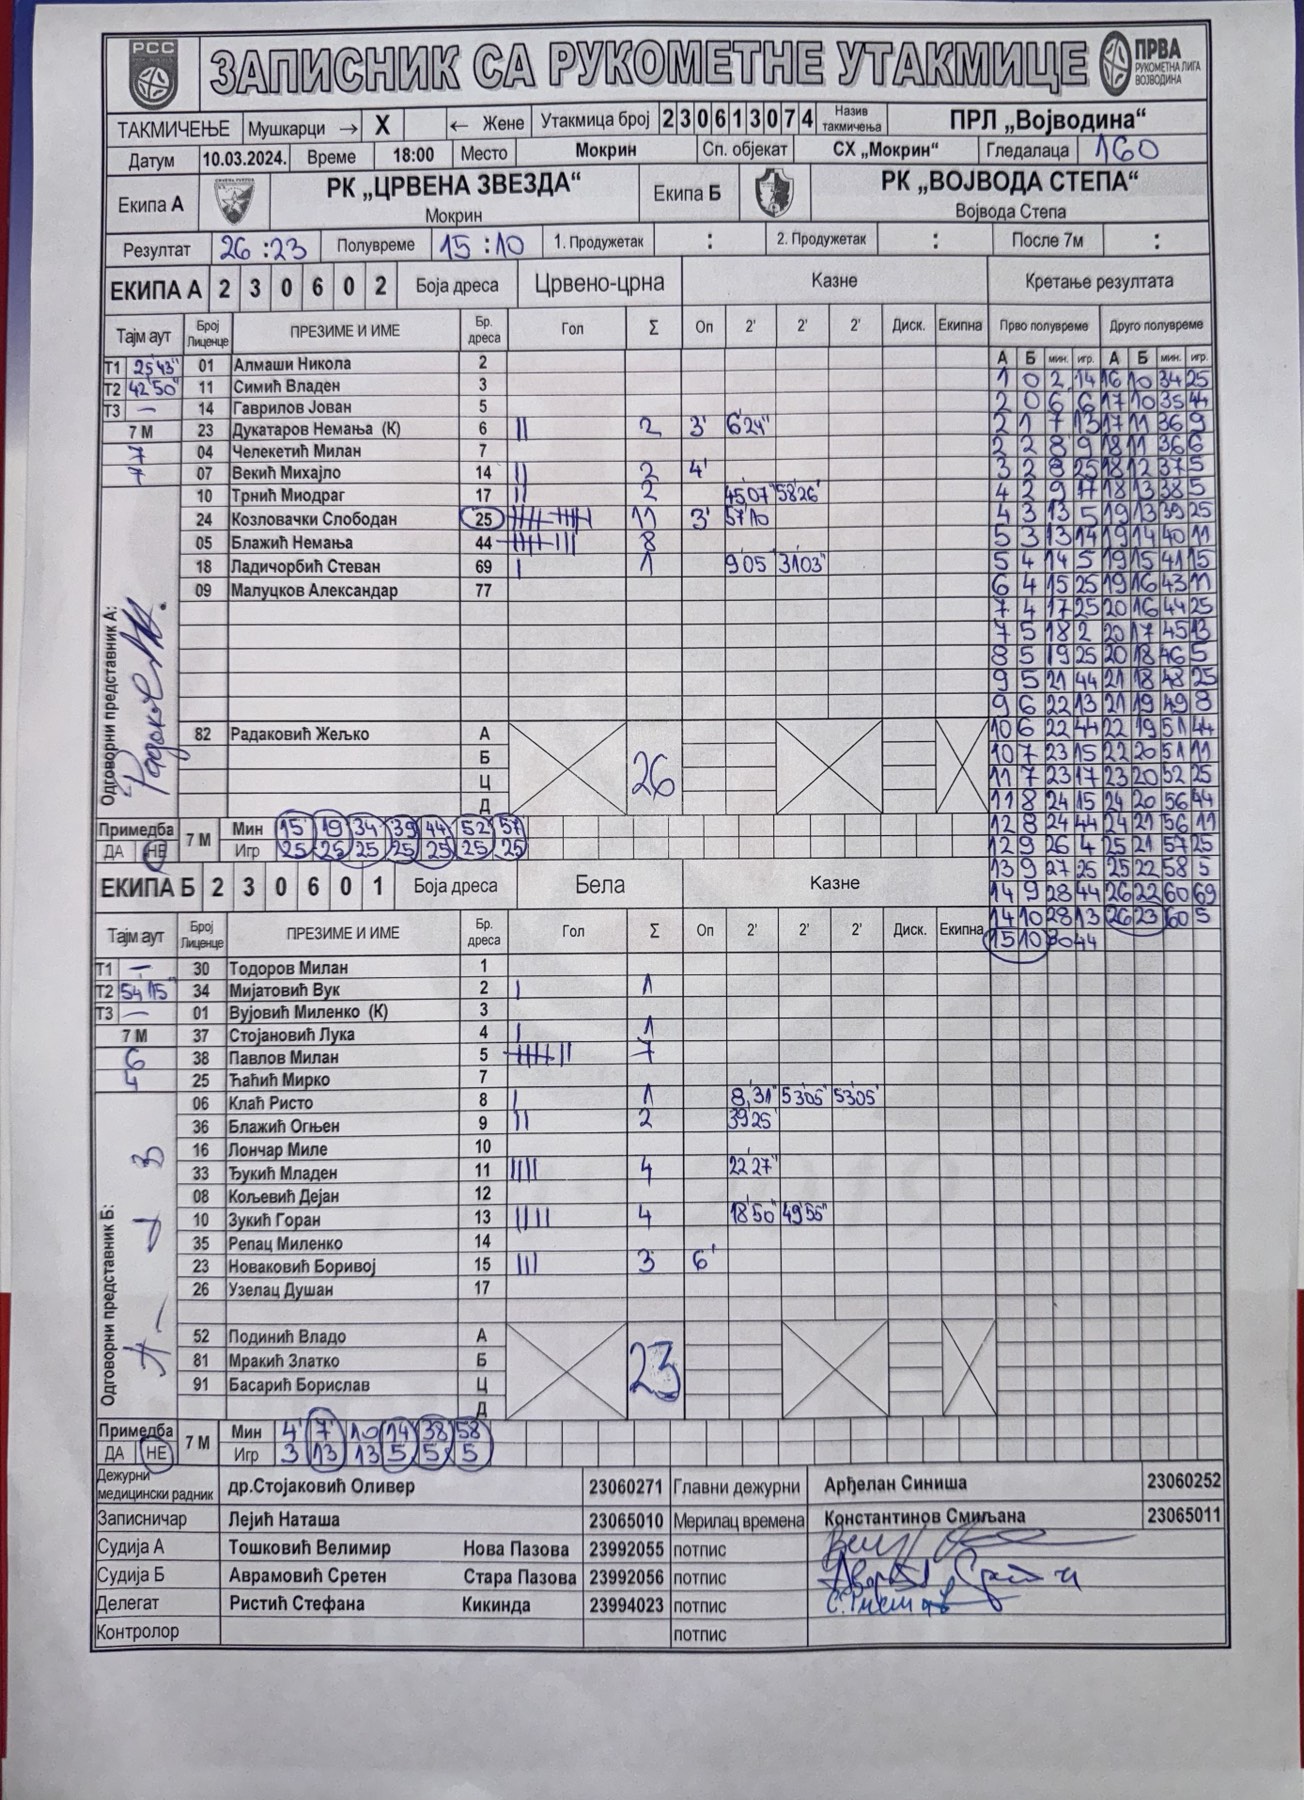 РСС
ЗАПИСНИК СА РУКОМЕТНЕ УТАКМИЦЕ
ПРВА
РУКОМЕТНА ЛИГА
ВОЈВОДИНА
ТАКМИЧЕЊЕ Мушкарци → X ← Жене Утакмица број 230613074 Назив такмичења ПРЛ „Војводина“
Датум 10.03.2024. Време 18:00 Место Мокрин Сп. објекат СХ „Мокрин“ Гледалаца 160
Екипа А РК „ЦРВЕНА ЗВЕЗДА“ Мокрин Екипа Б РК „ВОЈВОДА СТЕПА“ Војвода Степа
Резултат 26 : 23 Полувреме 15 : 10 1. Продужетак : 2. Продужетак : После 7м :
ЕКИПА А 2 3 0 6 0 2 Боја дреса Црвено-црна Казне Кретање резултата
Тајм аут Број Лиценце ПРЕЗИМЕ И ИМЕ Бр. дреса Гол Σ Оп 2' 2' 2' Диск. Екипна Прво полувреме Друго полувреме
А Б мин. игр. А Б мин. игр.
Т1 25'43" 01 Алмаши Никола 2
Т2 42'50" 11 Симић Владен 3
Т3 — 14 Гаврилов Јован 5
7 М 23 Дукатаров Немања (К) 6 || 2 3' 6'24"
7 04 Челекетић Милан 7
7 07 Векић Михајло 14 || 2 4'
10 Трнић Миодраг 17 || 2 45'07" 58'26"
24 Козловачки Слободан 25 11 3' 57'10
05 Блажић Немања 44 8
18 Ладичорбић Стеван 69 | 1 9'05 31'03"
09 Малуцков Александар 77
1 0 2 14 16 10 34 25
2 0 6 6 17 10 35 44
2 1 7 13 17 11 36 9
2 2 8 9 18 11 36 6
3 2 8 25 18 12 37 5
4 2 9 17 18 13 38 5
4 3 13 5 19 13 39 25
5 3 13 14 19 14 40 11
5 4 14 5 19 15 41 15
6 4 15 25 19 16 43 11
7 4 17 25 20 16 44 25
7 5 18 2 20 17 45 13
8 5 19 25 20 18 46 5
9 5 21 44 21 18 48 25
9 6 22 13 21 19 49 8
10 6 22 44 22 19 51 44
10 7 23 15 22 20 51 11
11 7 23 17 23 20 52 25
11 8 24 15 24 20 56 44
12 8 24 44 24 21 56 11
12 9 26 4 25 21 57 25
13 9 27 25 25 22 58 5
14 9 28 44 26 22 60 69
14 10 28 13 26 23 60 5
15 10 30 44
Одговорни представник А:
82 Радаковић Жељко А
Б
Ц
Д
26
Примедба ДА НЕ 7 М
Мин 15' 19 34 39 44 52' 57
Игр 25 25 25 25 25 25 25
ЕКИПА Б 2 3 0 6 0 1 Боја дреса Бела Казне
Тајм аут Број Лиценце ПРЕЗИМЕ И ИМЕ Бр. дреса Гол Σ Оп 2' 2' 2' Диск. Екипна
Т1 — 30 Тодоров Милан 1
Т2 54'15" 34 Мијатовић Вук 2 | 1
Т3 — 01 Вујовић Миленко (К) 3
7 М 37 Стојановић Лука 4 | 1
6 38 Павлов Милан 5 7
4 25 Ћаћић Мирко 7
06 Клаћ Ристо 8 | 1 8'31" 53'05" 53'05"
36 Блажић Огњен 9 || 2 39'25
16 Лончар Миле 10
33 Ђукић Младен 11 |||| 4 22'27"
08 Кољевић Дејан 12
10 Зукић Горан 13 |||| 4 18'50" 49'55"
35 Репац Миленко 14
23 Новаковић Боривој 15 ||| 3 6'
26 Узелац Душан 17
Одговорни представник Б:
52 Подинић Владо А
81 Мракић Златко Б
91 Басарић Борислав Ц
Д
23
Примедба ДА НЕ 7 М
Мин 4' 7' 10 14 38 58
Игр 3 13 13 5 5 5
Дежурни медицински радник др.Стојаковић Оливер 23060271 Главни дежурни Арђелан Синиша 23060252
Записничар Лејић Наташа 23065010 Мерилац времена Константинов Смиљана 23065011
Судија А Тошковић Велимир Нова Пазова 23992055 потпис
Судија Б Аврамовић Сретен Стара Пазова 23992056 потпис
Делегат Ристић Стефана Кикинда 23994023 потпис
Контролор потпис